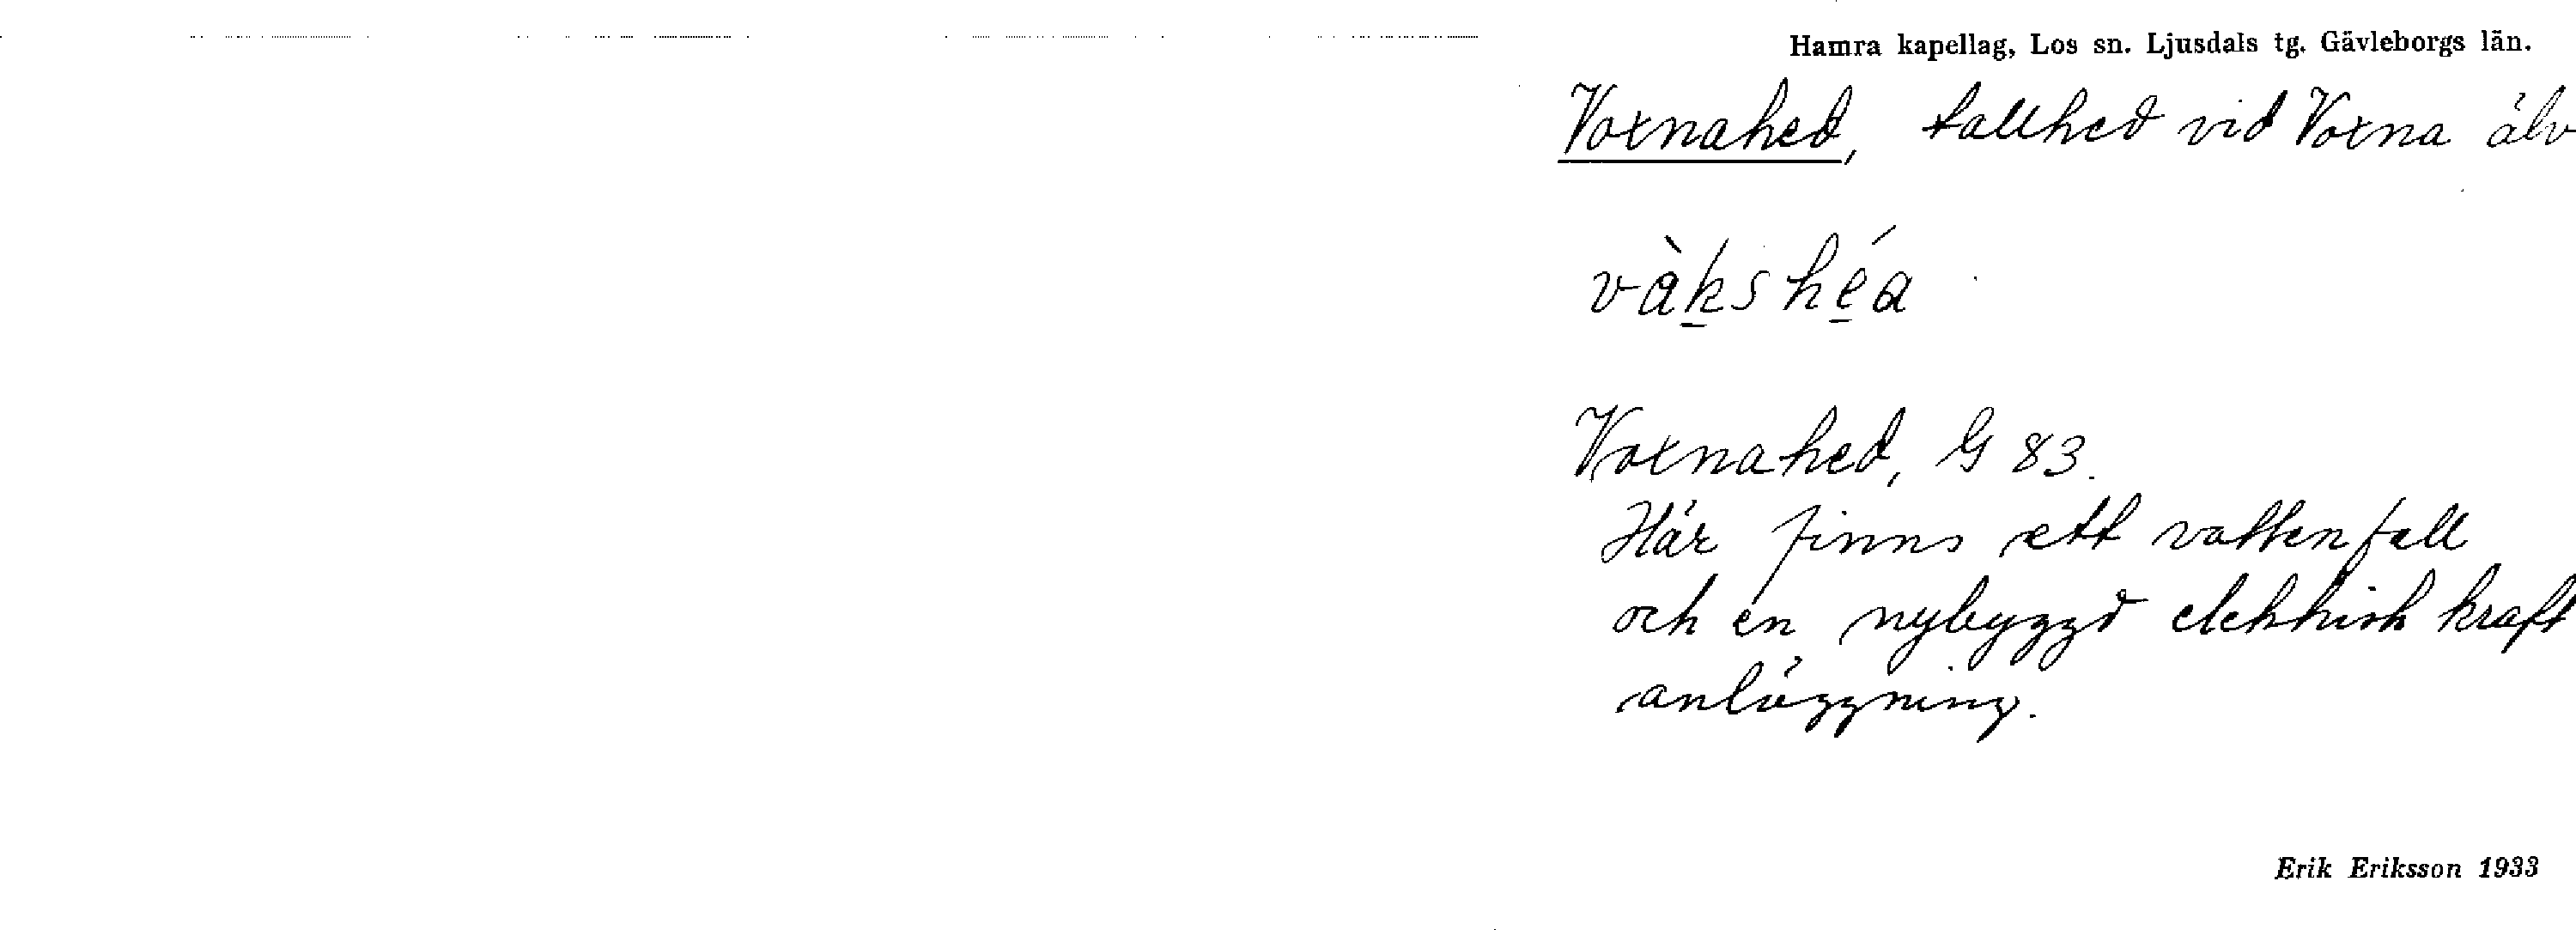 Hamra kapellag, Los sn. Ljusdals tg. Gävleborgs län.
Voxnahed, tallhed vid Voxna älv
vàkshéa
Voxnahed, G 83.
Här finns ett vattenfall
och en nybyggd elektrisk kraft
anläggning.
Erik Eriksson 1933